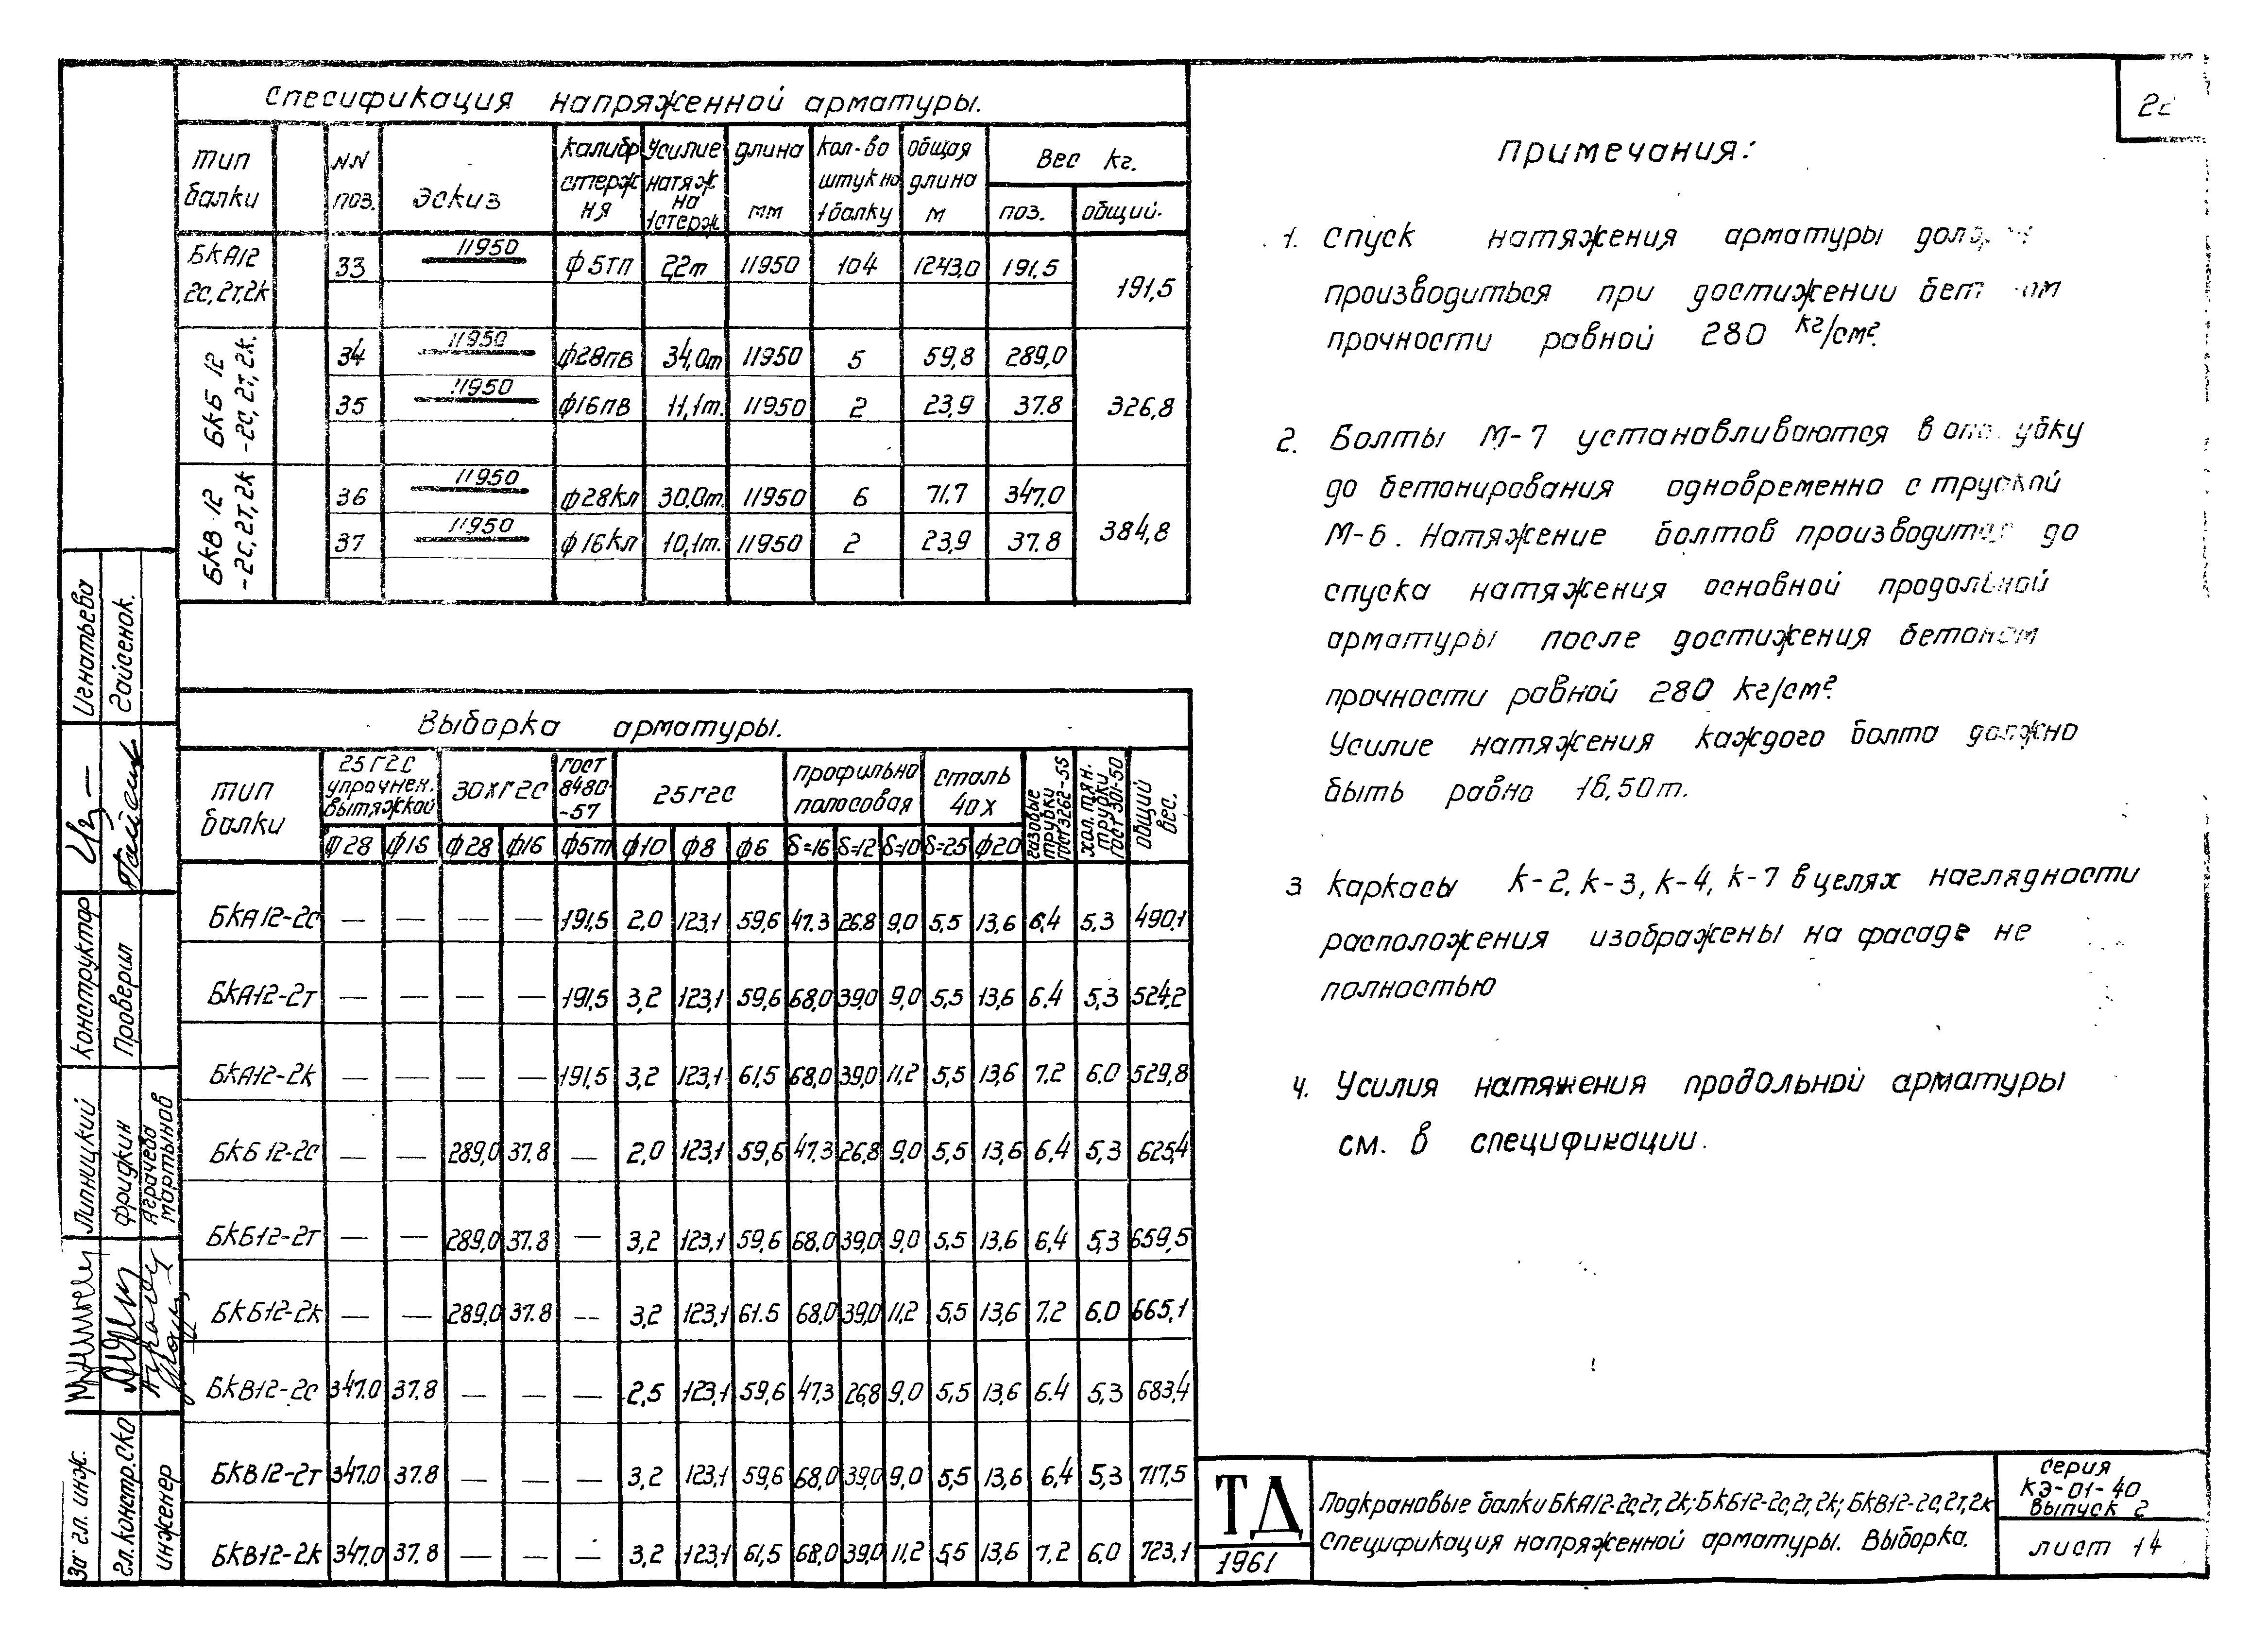 Спецификация напряженной арматуры.
Тип балки NN поз. Эскиз Калибр стержня Усилие натяж на 1стерж. длина мм Кол-во штук на 1балку общая длина м Вес кг.
поз. общий.
БКА12 2с, 2т, 2к 33 11950 ф5тп 2,2т 11950 104 1243,0 191.5 191,5
БКБ 12 -2с, 2т, 2к. 34 11950 ф28пв 34,0т 11950 5 59,8 289,0 326,8
35 11950 ф16пв 11,1т. 11950 2 23,9 37.8
БКВ-12 -2с, 2т, 2к 36 11950 ф28кл 30.0т. 11950 6 71.7 347.0 384,8
37 11950 ф16кл 10,1т. 11950 2 23,9 37.8
Выборка арматуры.
тип балки 25Г2С упрочнен. вытяжкой 30ХГ2С ГОСТ 8480-57 25Г2С профильно полосовая Сталь 40Х газовые трубки ГОСТ3262-55 хол. тян. трубки ГОСТ301-50 общий вес.
ф28 ф16 ф28 ф16 ф5т ф10 ф8 ф6 δ=16 δ=12 δ=10 δ=25 ф20
БКА12-2с — — — — 191,5 2,0 123,1 59,6 47.3 26.8 9,0 5,5 13,6 6,4 5,3 490,1
БКА12-2т — — — — 191,5 3,2 123,1 59,6 68,0 39,0 9,0 5,5 13,6 6.4 5,3 524,2
БКА12-2к — — — — 191,5 3,2 123,1 61,5 68,0 39,0 11,2 5,5 13,6 7,2 6.0 529,8
БКБ 12-2с — — 289,0 37.8 — 2,0 123,1 59,6 47.3 26,8 9,0 5,5 13,6 6.4 5,3 625,4
БКБ12-2т — — 289,0 37.8 — 3,2 123,1 59,6 68,0 39,0 9,0 5,5 13,6 6,4 5,3 659,5
БКБ12-2к — — 289,0 37.8 -- 3,2 123,1 61.5 68,0 39,0 11,2 5,5 13,6 7,2 6.0 665,1
БКВ12-2с 347.0 37.8 — — — 2,5 123,1 59,6 47,3 26,8 9,0 5,5 13,6 6.4 5,3 683,4
БКВ12-2т 347.0 37.8 — — — 3,2 123,1 59,6 68,0 39,0 9,0 5,5 13,6 6,4 5,3 717,5
БКВ12-2к 347.0 37.8 — — — 3,2 123,1 61,5 68,0 39,0 11,2 5,5 13,6 7,2 6,0 723,1
Примечания:
1. Спуск натяжения арматуры
производиться при достижении
прочности равной 280 кг/см².
2. Болты М-7 устанавливаются в
до бетонирования одновременно с трубкой
М-6. Натяжение болтов производится до
спуска натяжения основной продольной
арматуры после достижения бетоном
прочности равной 280 кг/см².
Усилие натяжения каждого болта должно
быть равно 16,50т.
3 Каркасы К-2, К-3, К-4, К-7 в целях наглядности
расположения изображены на фасаде не
полностью
4. Усилия натяжения продольной арматуры
см. в спецификации.
ТД
1961
Подкрановые балки БКА12-2с,2т,2к; БКБ12-2с,2т,2к; БКВ12-2с,2т,2к
Спецификация напряженной арматуры. Выборка.
Серия
КЭ-01-40
Выпуск 2
лист 14
Игнатьева
Гайсенок.
Конструктор
Проверил
Липницкий
Фридкин
Аграчева
Мартынов
Зав гл. инж.
Гл. констр. СКО
Инженер